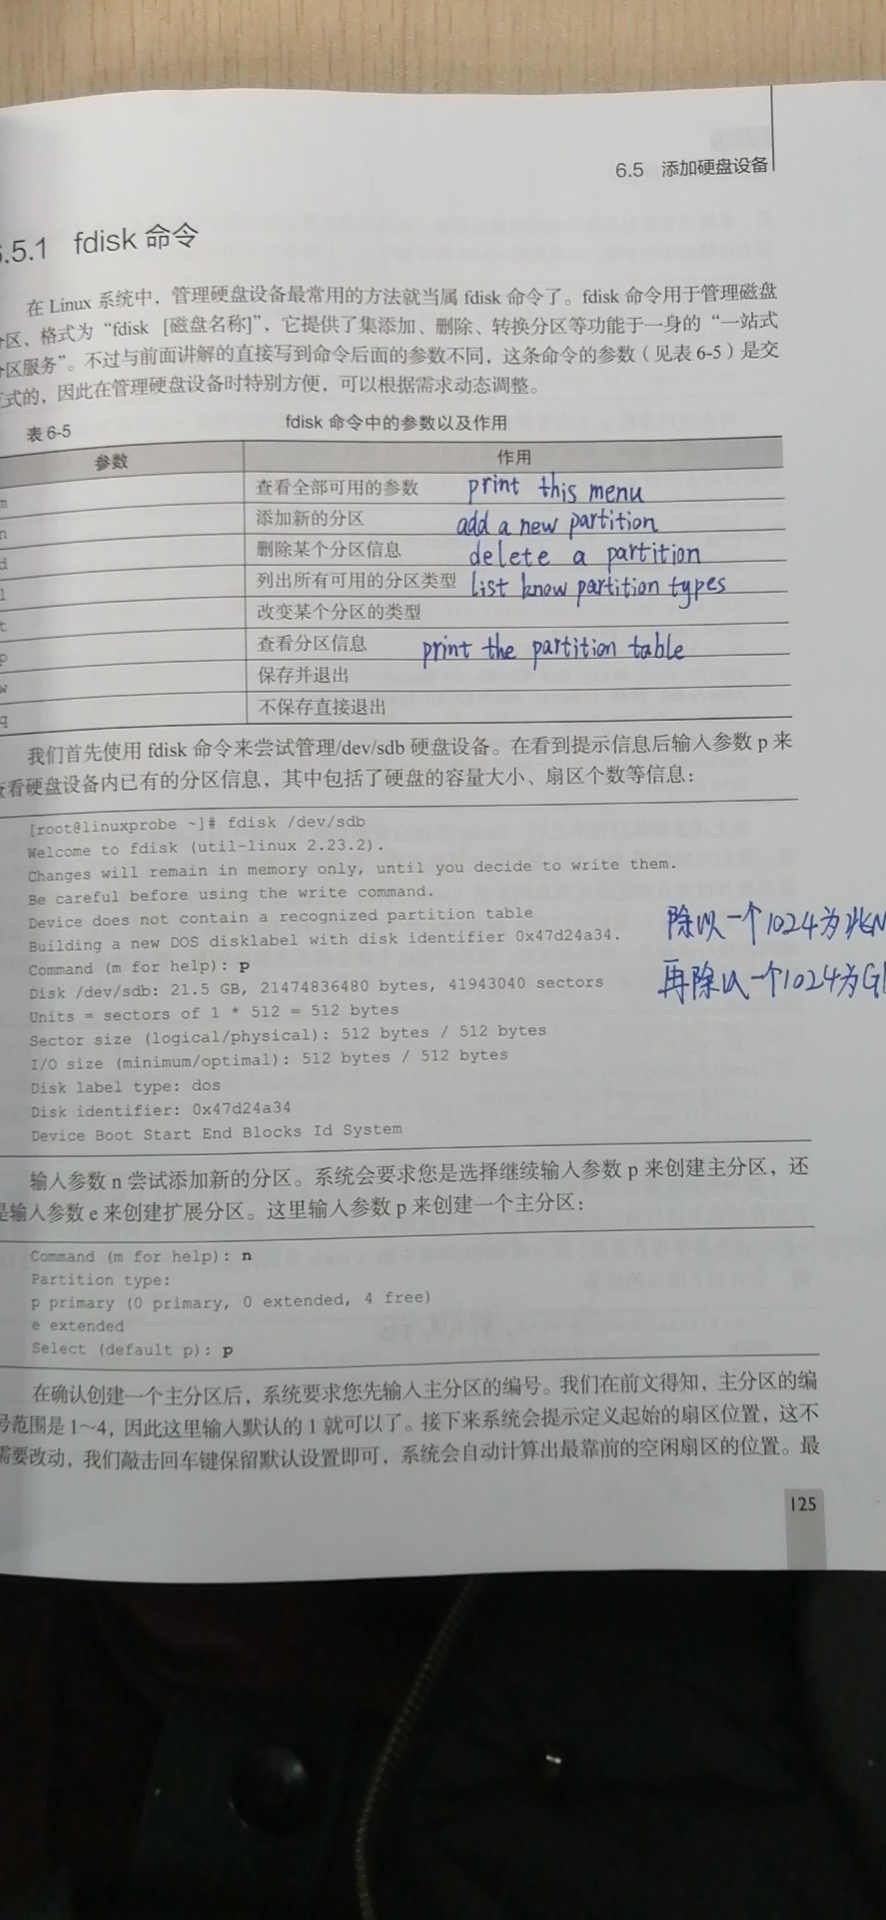 6.5 添加硬盘设备
.5.1 fdisk 命令
在 Linux 系统中，管理硬盘设备最常用的方法就当属 fdisk 命令了。fdisk 命令用于管理磁盘
区，格式为“fdisk [磁盘名称]”，它提供了集添加、删除、转换分区等功能于一身的“一站式
区服务”。不过与前面讲解的直接写到命令后面的参数不同，这条命令的参数（见表 6-5）是交
式的，因此在管理硬盘设备时特别方便，可以根据需求动态调整。
表 6-5 fdisk 命令中的参数以及作用
参数 作用
m 查看全部可用的参数 print this menu
n 添加新的分区 add a new partition
d 删除某个分区信息 delete a partition
l 列出所有可用的分区类型 list know partition types
t 改变某个分区的类型
p 查看分区信息 print the partition table
w 保存并退出
q 不保存直接退出
我们首先使用 fdisk 命令来尝试管理/dev/sdb 硬盘设备。在看到提示信息后输入参数 p 来
查看硬盘设备内已有的分区信息，其中包括了硬盘的容量大小、扇区个数等信息：
[root@linuxprobe ~]# fdisk /dev/sdb
Welcome to fdisk (util-linux 2.23.2).
Changes will remain in memory only, until you decide to write them.
Be careful before using the write command.
Device does not contain a recognized partition table
Building a new DOS disklabel with disk identifier 0x47d24a34.
Command (m for help): p
Disk /dev/sdb: 21.5 GB, 21474836480 bytes, 41943040 sectors
Units = sectors of 1 * 512 = 512 bytes
Sector size (logical/physical): 512 bytes / 512 bytes
I/O size (minimum/optimal): 512 bytes / 512 bytes
Disk label type: dos
Disk identifier: 0x47d24a34
Device Boot Start End Blocks Id System
除以一个1024为
再除以一个1024为G
输入参数 n 尝试添加新的分区。系统会要求您是选择继续输入参数 p 来创建主分区，还
是输入参数 e 来创建扩展分区。这里输入参数 p 来创建一个主分区：
Command (m for help): n
Partition type:
p primary (0 primary, 0 extended, 4 free)
e extended
Select (default p): p
在确认创建一个主分区后，系统要求您先输入主分区的编号。我们在前文得知，主分区的编
号范围是 1～4，因此这里输入默认的 1 就可以了。接下来系统会提示定义起始的扇区位置，这不
需要改动，我们敲击回车键保留默认设置即可，系统会自动计算出最靠前的空闲扇区的位置。最
125